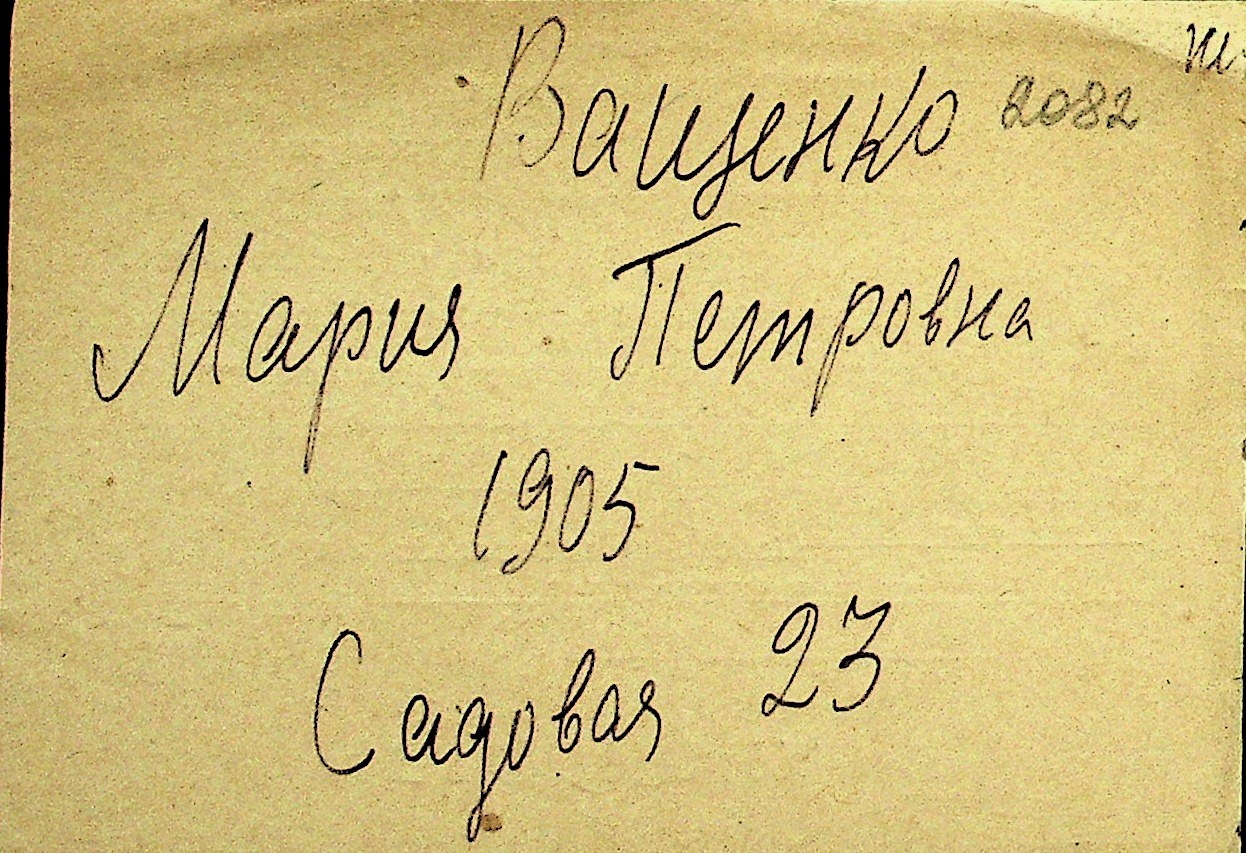 Ващенко 2082
Мария Петровна
1905
Садовая 23